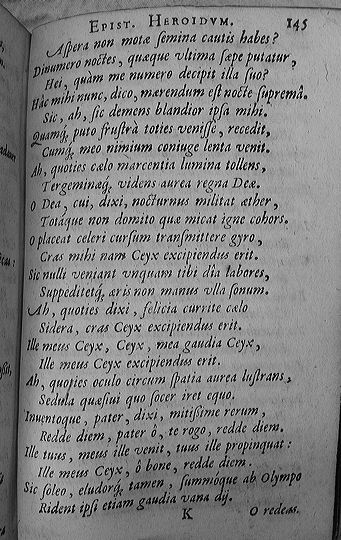 EPIST. HEROIDVM. 145
Aspera non motæ semina cautis habes?
Dinumero noctes, quæque vltima sæpe putatur,
Hei, quàm me numero decipit illa suo?
Hâc mihi nunc, dico, mærendum est nocte supremâ.
Sic, ah, sic demens blandior ipsa mihi.
Quamq́; puto frustrà toties venisse, recedit,
Cumq́; meo nimium coniuge lenta venit.
Ah, quoties cælo marcentia lumina tollens,
Tergeminæq́; videns aurea regna Deæ.
O Dea, cui, dixi, nocturnus militat æther,
Totaque non domito quæ micat igne cohors.
O placeat celeri cursum transmittere gyro,
Cras mihi nam Ceyx excipiendus erit.
Sic nulli veniant vnquam tibi dia labores,
Suppeditetq́; æris non manus vlla sonum.
Ah, quoties dixi, felicia currite cælo
Sidera, cras Ceyx excipiendus erit.
Ille meus Ceyx, Ceyx, mea gaudia Ceyx,
Ille meus Ceyx excipiendus erit.
Ah, quoties oculo circum spatia aurea lustrans,
Sedula quæsiui quo socer iret equo.
Inuentoque, pater, dixi, mitissime rerum,
Redde diem, pater ô, te rogo, redde diem.
Ille tuus, meus ille venit, tuus ille propinquat:
Ille meus Ceyx, ô bone, redde diem.
Sic soleo, eludorq́; tamen, summoque ab Olympo
Rident ipsi etiam gaudia vana dij.
K O redeas.